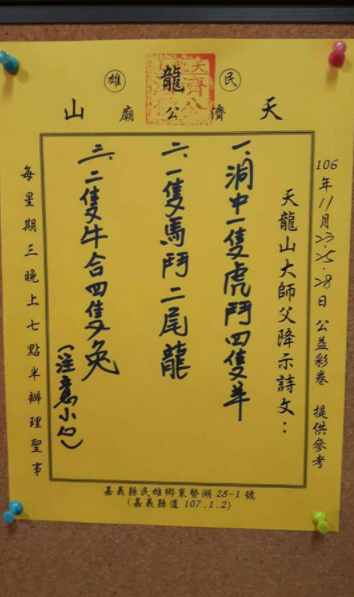 民 龍 雄
天 濟 公 廟 山
106年11月23.25.28日 公益彩卷 提供參考
天龍山大師父降示詩文：
一、洞中一隻虎鬥四隻羊
二、一隻馬鬥二尾龍
三、二隻牛合四隻兔
(注意小勾)
每星期三晚上七點半辦理聖事
嘉義縣民雄鄉東勢湖28-1號
(嘉義縣道107.1.2)